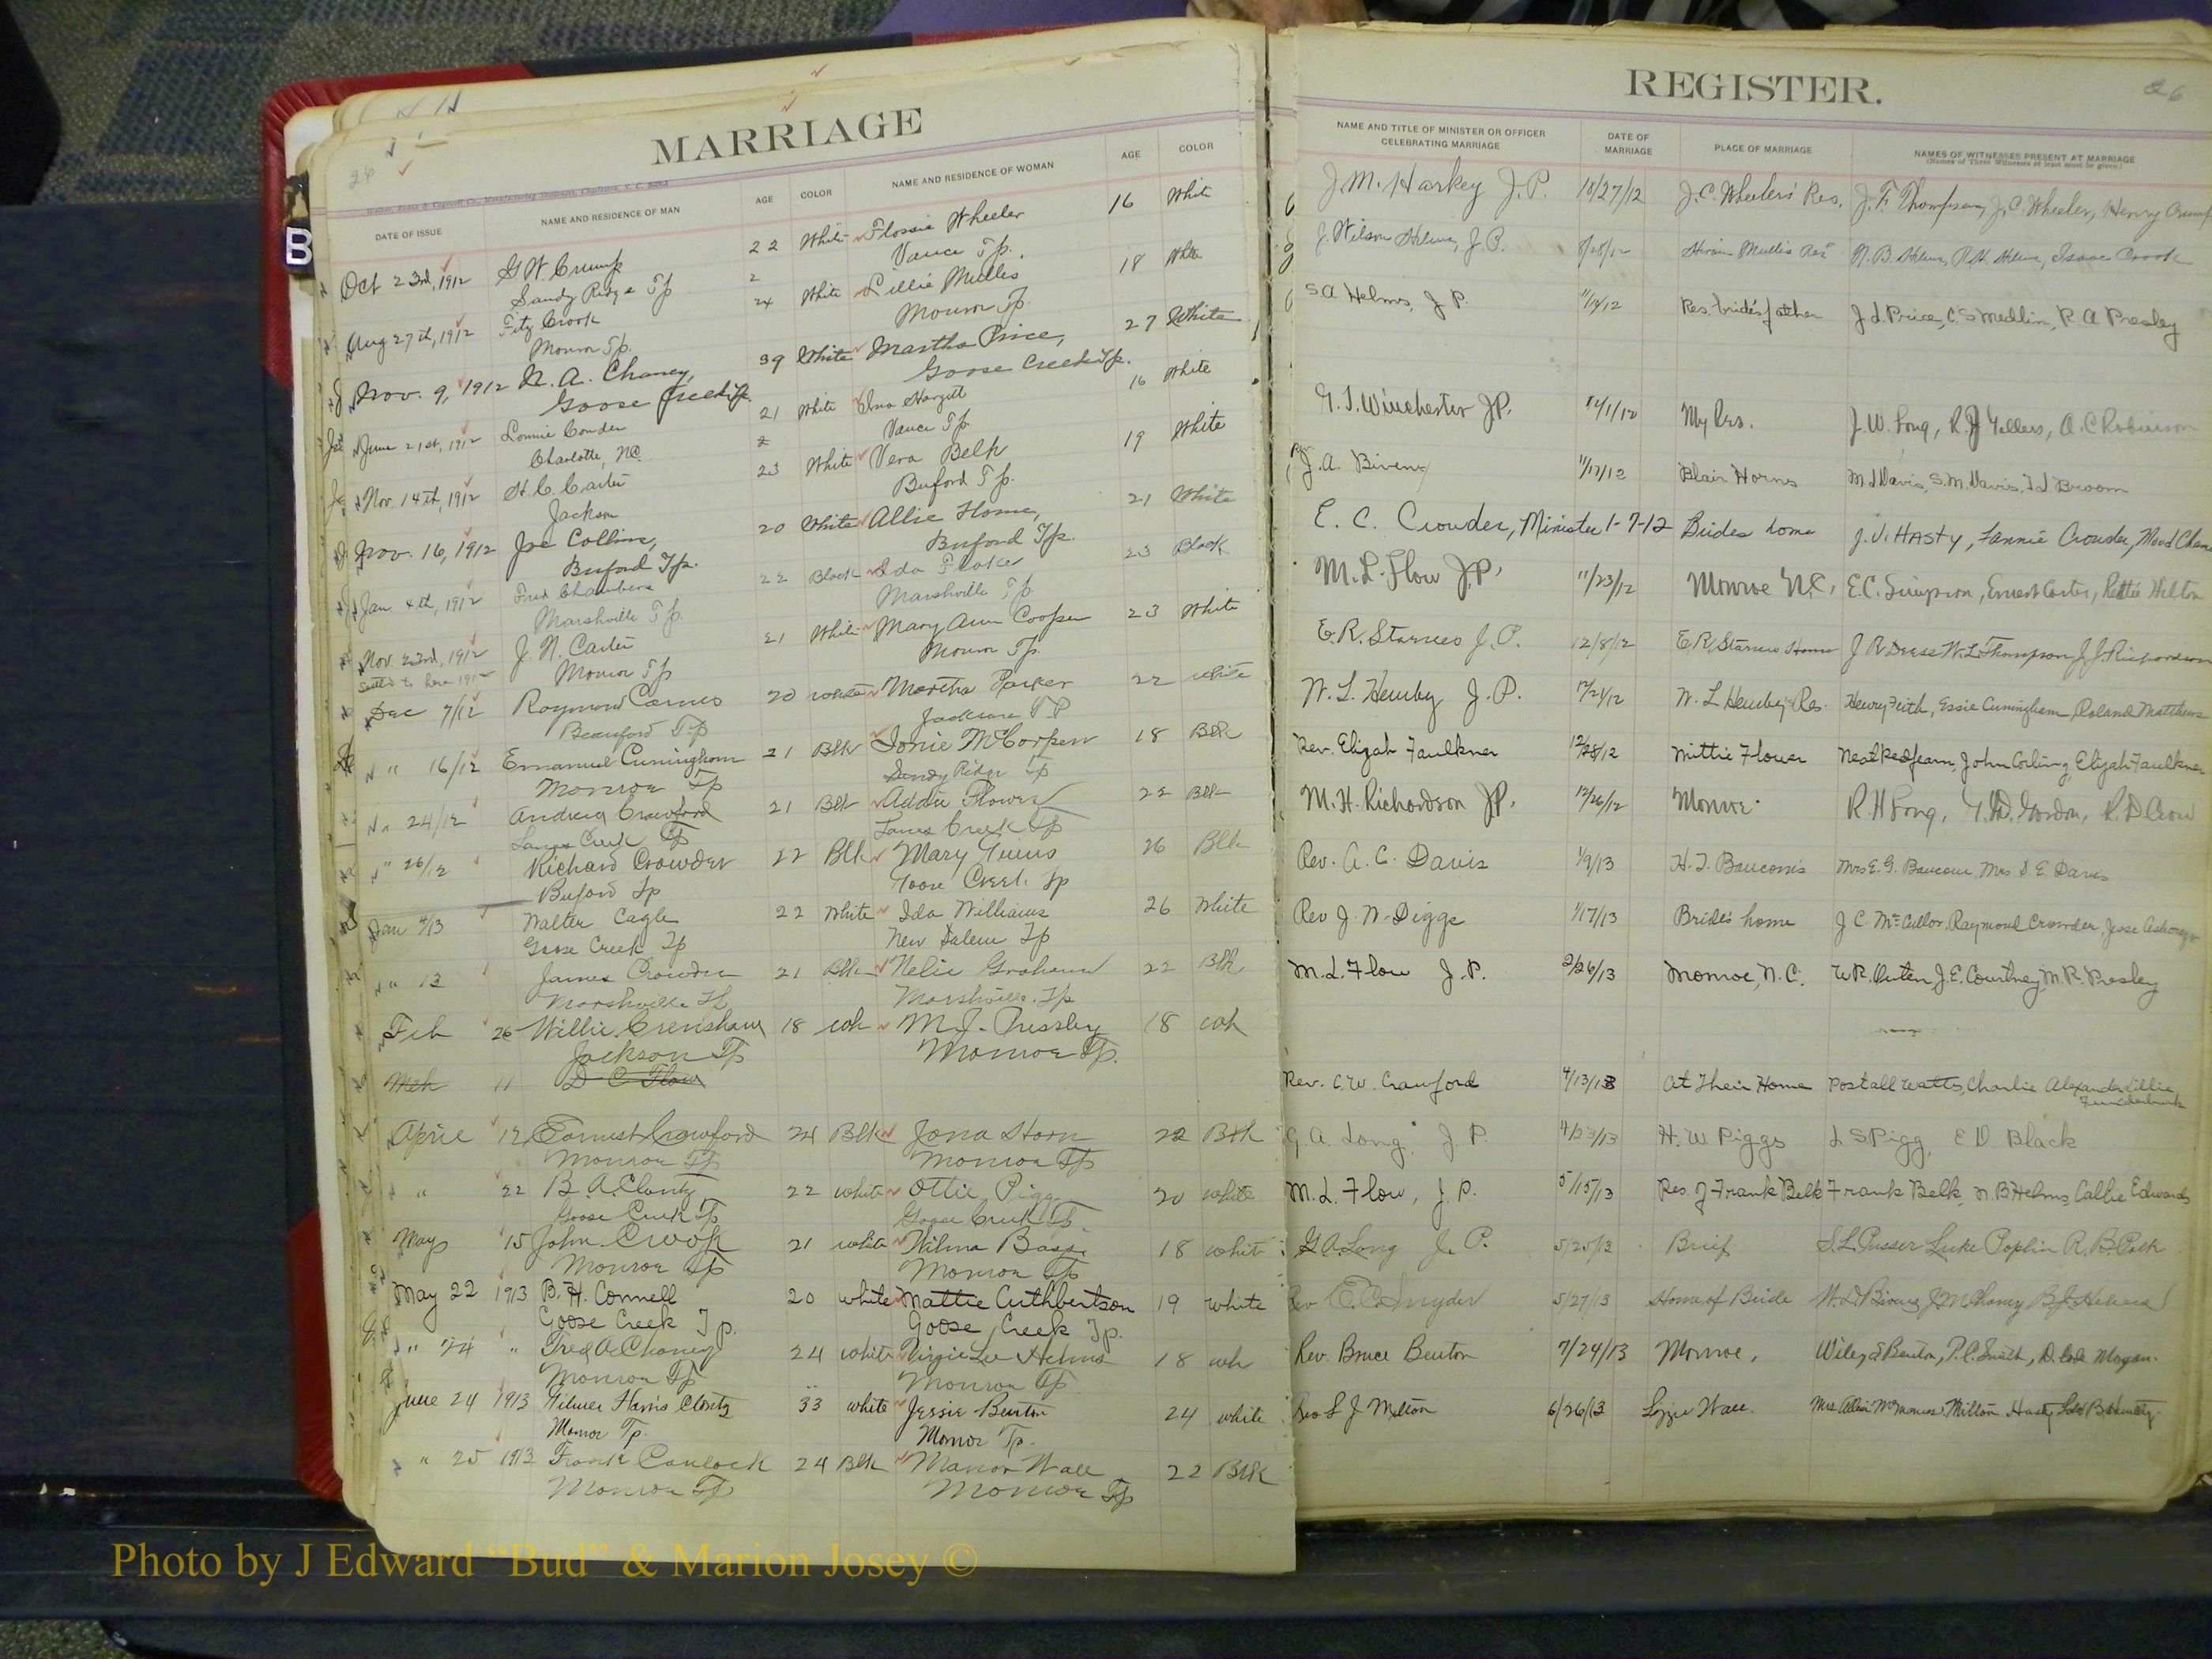 MARRIAGE
26
DATE OF ISSUE NAME AND RESIDENCE OF MAN AGE COLOR NAME AND RESIDENCE OF WOMAN AGE COLOR
Oct 23rd, 1912 G W Crump 22 White Flossie Wheeler 16 White
Sandy Ridge Tp Vance Tp.
Aug 27th, 1912 Fitz Crook 24 White Lillie Mullis 18 White
Monroe Tp. Monroe Tp.
Nov. 9, 1912 N. A. Chaney, 39 White Martha Price, 27 White
Goose Creek Tp. Goose Creek Tp.
June 21st, 1912 Lonnie Conder 21 White Ina Hargett 16 White
Charlotte, NC. Vance Tp.
Nov. 14th, 1912 H. C. Carter 23 White Vera Belk 19 White
Jackson Buford Tp.
Nov. 16, 1912 Joe Collins, 20 White Allie Horne, 21 White
Buford Tp. Buford Tp.
Jan 4th, 1912 Fred Chambers 22 Black Ida Flake 23 Black
Marshville Tp. Marshville Tp
Nov. 23rd, 1912 J. N. Carter 21 White Mary Ann Cooper 23 White
Monroe Tp Monroe Tp.
Dec 7/12 Raymond Carnes 20 white Martha Parker 22 white
Beauford Tp Jackson T P
" 16/12 Emanuel Cuningham 21 Blk Ionie McCorpen 18 Blk
Monroe Tp Sandy Ridge Tp
" 24/12 Andrew Crawford 21 Blk Addie Flower 22 Blk
Lanes Creek Tp Lanes Creek Tp
" 26/12 Richard Crowder 22 Blk Mary 26 Blk
Buford Tp Goose Creek Tp
Jan 4/13 Walter Cagle 22 White Ida Williams 26 White
Goose Creek Tp New Salem Tp
" 13 James Crowder 21 Blk Nelie Graham 22 Blk
Marshville Tp Marshville Tp
Feb 26 Willie Crenshaw 18 wh M. J. Pressley 18 wh
Jackson Tp Monroe Tp.
Mch 11 D C Flow
April 12 Earnest Crawford 24 Blk Jona Horn 22 Blk
Monroe Tp Monroe Tp
" 22 B. A. Clontz 22 white Ottie Pigg 20 white
Goose Creek Tp Goose Creek Tp.
May 15 John Crook 21 white Wilma Bass 18 whit
Monroe Tp Monroe Tp
May 22 1913 B. H. Connell 20 white Mattie Cuthbertson 19 white
Goose Creek Tp. Goose Creek Tp.
" 24 " Fred A Chaney 24 white Virgie Lee Helms 18 wh
Monroe Tp Monroe Tp
June 24 1913 Wilmer Harris Clontz 33 white Jessie Benton 24 white
Monroe Tp. Monroe Tp.
" 25 1913 Frank Caulock 24 Blk Manor Wall 22 Blk
Monroe Tp Monroe Tp
REGISTER.
26
NAME AND TITLE OF MINISTER OR OFFICER CELEBRATING MARRIAGE DATE OF MARRIAGE PLACE OF MARRIAGE NAMES OF WITNESSES PRESENT AT MARRIAGE
(Names of Three Witnesses at least must be given.)
J. M. Harkey J. P. 10/27/12 J. C. Wheeler's Res. J. F. Thompson, J. C. Wheeler, Henry Crump
J. Wilson Helms, J. P. 8/28/12 Hiram Mullis Res N. B. Helms, R. H. Helms, Isaac Crook
S A Helms, J P. 11/10/12 Res. bride's father J. L. Price, C. S. Medlin, R. A Presley
G. T. Winchester J.P. 12/1/12 My Res. J. W. Long, R. J. Yellers, A. C Robinson
J. A. Bivens 11/17/12 Blair Hornes M J Davis, S. M. Davis, J J Broom
E. C. Crowder, Minister 1-7-12 Brides home J. V. HASTY, Fannie Crowder, Maud Chan
M. L. Flow J.P. 11/23/12 Monroe N.C, E. C. Simpson, Ernest Carter, Rettie Helton
E. R. Starnes J. P. 12/8/12 E R, Starnes Home J R Deese W. L. Thompson J J. Richardson
W. L. Hemby J. P. 12/21/12 W. L Hemby Res. Henry Feith, Essie Cuningham, Roland Matthews
Rev. Elijah Faulkner 12/28/12 Mittie Flower Neal Redfearn, John Corling, Elijah Faulkner
M. H. Richardson J.P. 12/26/12 Monroe R. H Long, Y. D. Gordon, R. D. Crow
Rev. A. C. Davis 1/9/13 H. T. Baucom's Mrs E. G. Baucom, Mrs D E Davis
Rev J. W. Diggs 1/17/13 Bride's home J C. McCullor, Raymond Crowder, Jesse
M. L. Flow J. P. 2/26/13 Monroe, N. C. W R. Outen, J. E. Courtney, M. R. Presley
Rev. C. W. Crawford 4/13/13 At Their Home Postall Watts, Charlie Alexander, Lillie
Funderburk
G. A. Long J. P. 4/23/13 H. W Piggs L S Pigg, E D Black
M. L. Flow, J. P. 5/15/13 Res. of Frank Belk Frank Belk, N. B Helms, Callie Edwards
G A Long J. P. 5/25/13 Brief S. L. Pusser Luke Poplin R. B. Polk
Rev E. C. Snyder 5/27/13 Home of Bride W. D. Bivens J M Chaney B. J. Helms
Rev. Bruce Benton 7/24/13 Monroe, Wiley S Benton, P. C. Smith, D. Morgan.
Rev L J Melton 6/26/13 Lizzie Wall. Milton
Photo by J Edward “Bud” & Marion Josey ©